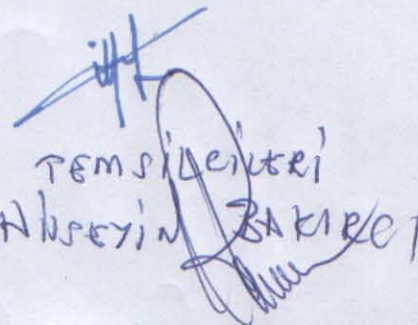 TEMSİLCİLERİ
HÜSEYİN BAKIRCI